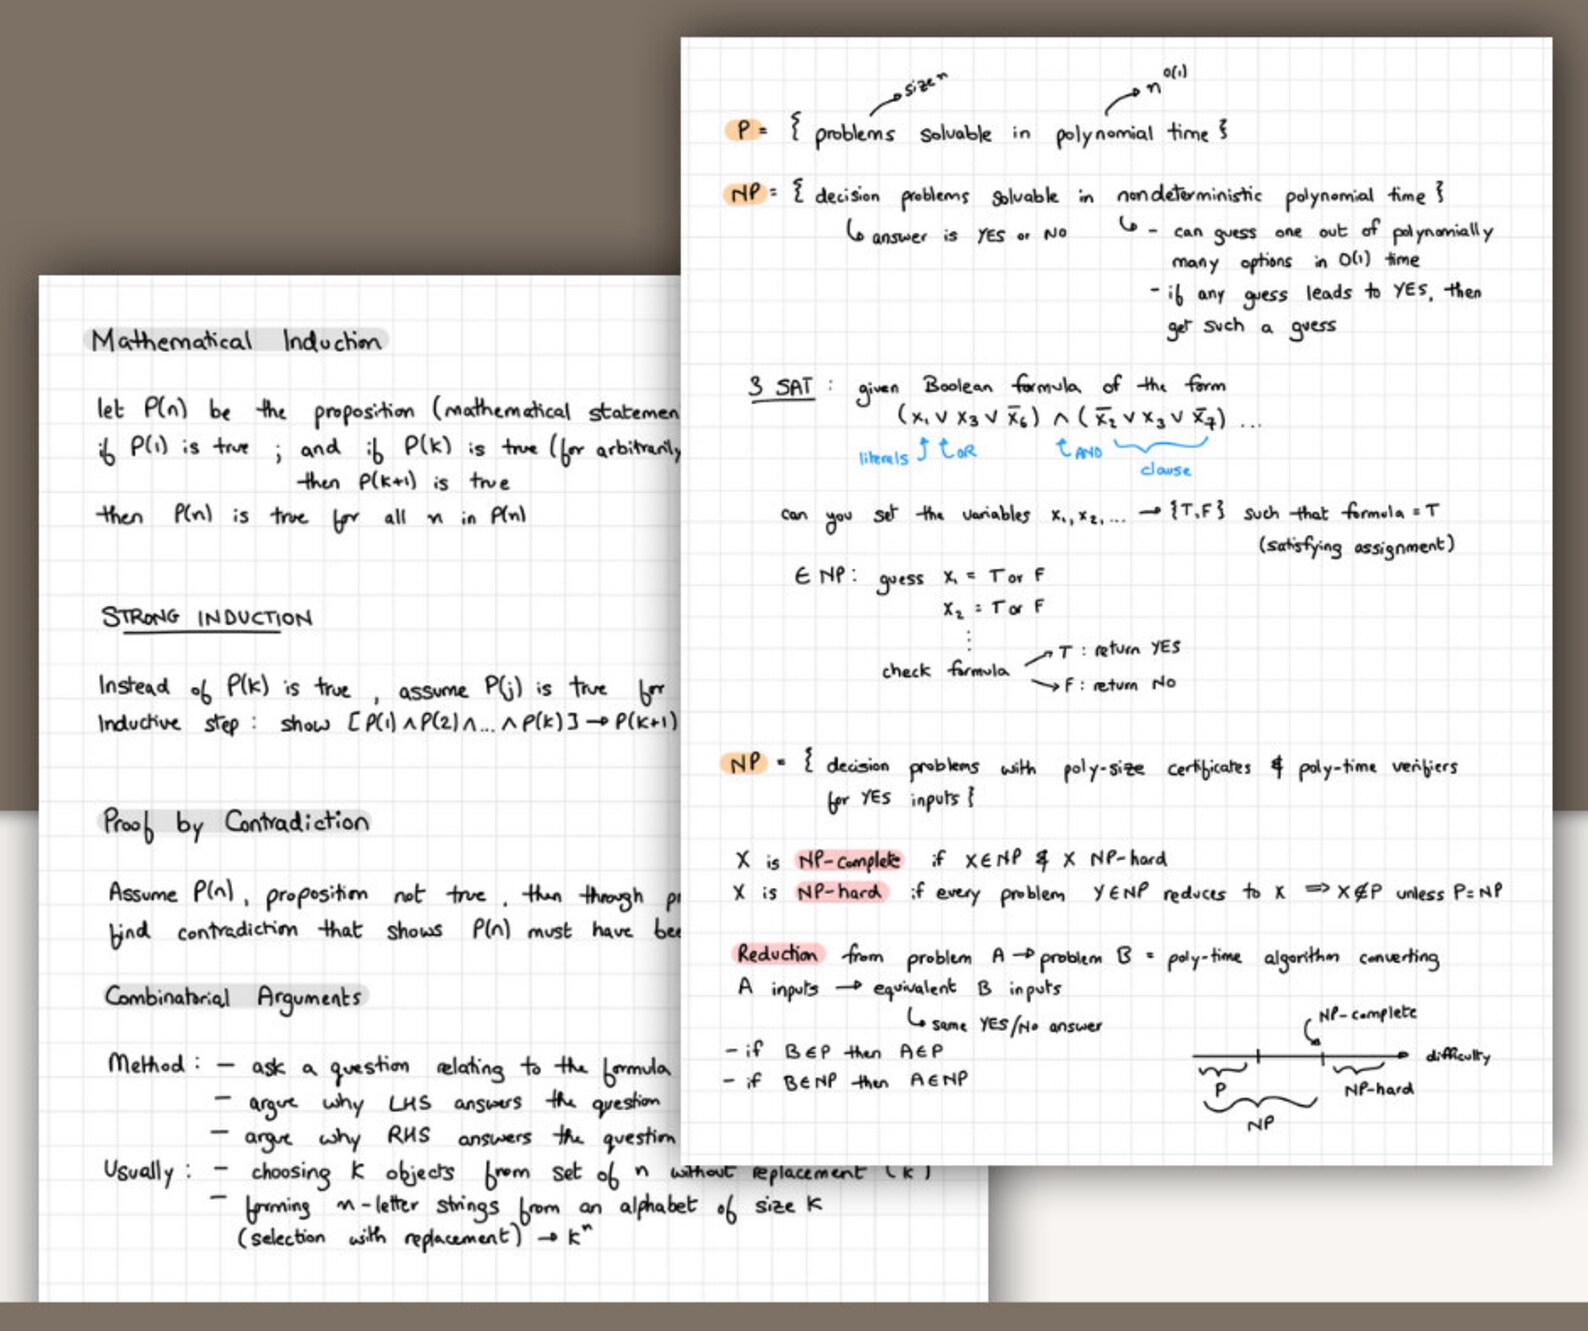 Mathematical Induction
let P(n) be the proposition (mathematical statemen
if P(1) is true ; and if P(k) is true (for arbitrarily
then P(k+1) is true
then P(n) is true for all n in P(n)
STRONG INDUCTION
Instead of P(k) is true , assume P(j) is true for
Inductive step : show [P(1) ∧ P(2) ∧ ... ∧ P(k)] → P(k+1)
Proof by Contradiction
Assume P(n), proposition not true, then through pr
find contradiction that shows P(n) must have bee
Combinatorial Arguments
Method : - ask a question relating to the formula
- argue why LHS answers the question
- argue why RHS answers the question
Usually : - choosing k objects from set of n without replacement
- forming n-letter strings from an alphabet of size k
(selection with replacement) → kⁿ
size n
n^O(1)
P = { problems solvable in polynomial time }
NP = { decision problems solvable in nondeterministic polynomial time }
↳ answer is YES or NO
↳ - can guess one out of polynomially
many options in O(1) time
- if any guess leads to YES, then
get such a guess
3 SAT : given Boolean formula of the form
(x₁ ∨ x₃ ∨ x̅₆) ∧ (x̅₂ ∨ x₃ ∨ x̅₇) ...
literals OR AND
clause
can you set the variables x₁, x₂, ... → {T,F} such that formula = T
(satisfying assignment)
∈ NP : guess x₁ = T or F
x₂ = T or F
⋮
T : return YES
check formula
F : return NO
NP = { decision problems with poly-size certificates & poly-time verifiers
for YES inputs }
X is NP-complete if X∈NP & X NP-hard
X is NP-hard if every problem Y∈NP reduces to X ⇒ X∉P unless P=NP
Reduction from problem A → problem B = poly-time algorithm converting
A inputs → equivalent B inputs
↳ same YES/NO answer
- if B∈P then A∈P
- if B∈NP then A∈NP
NP-complete
difficulty
P NP-hard
NP